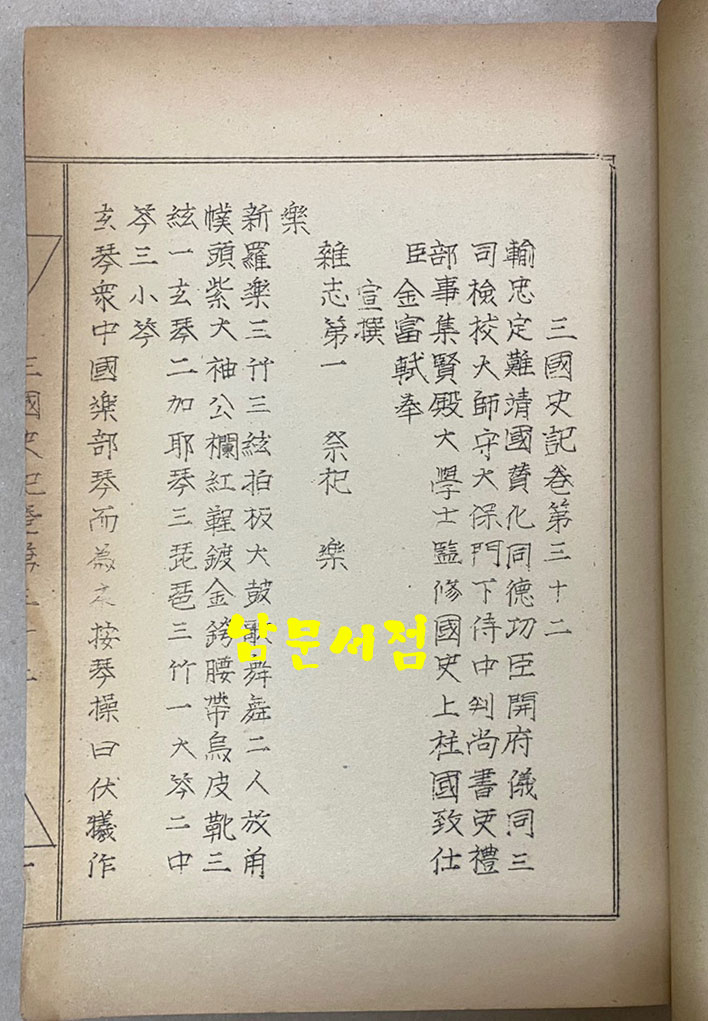 三國史記卷第三十二
輸忠定難靖國賛化同德功臣開府儀同三
司檢校大師守大保門下侍中判尚書吏禮
部事集賢殿大學士監修國史上柱國致仕
臣金富軾奉
宣撰
雜志第一 祭祀 樂
樂
新羅樂三竹三絃拍板大鼓歌舞舞二人放角
幞頭紫大袖公襴紅鞓鍍金銙腰帶烏皮靴三
絃一玄琴二加耶琴三琵琶三竹一大笒二中
笒三小笒
玄琴象中國樂部琴而為之按琴操曰伏犧作
三國史記卷第三十二
남문서점